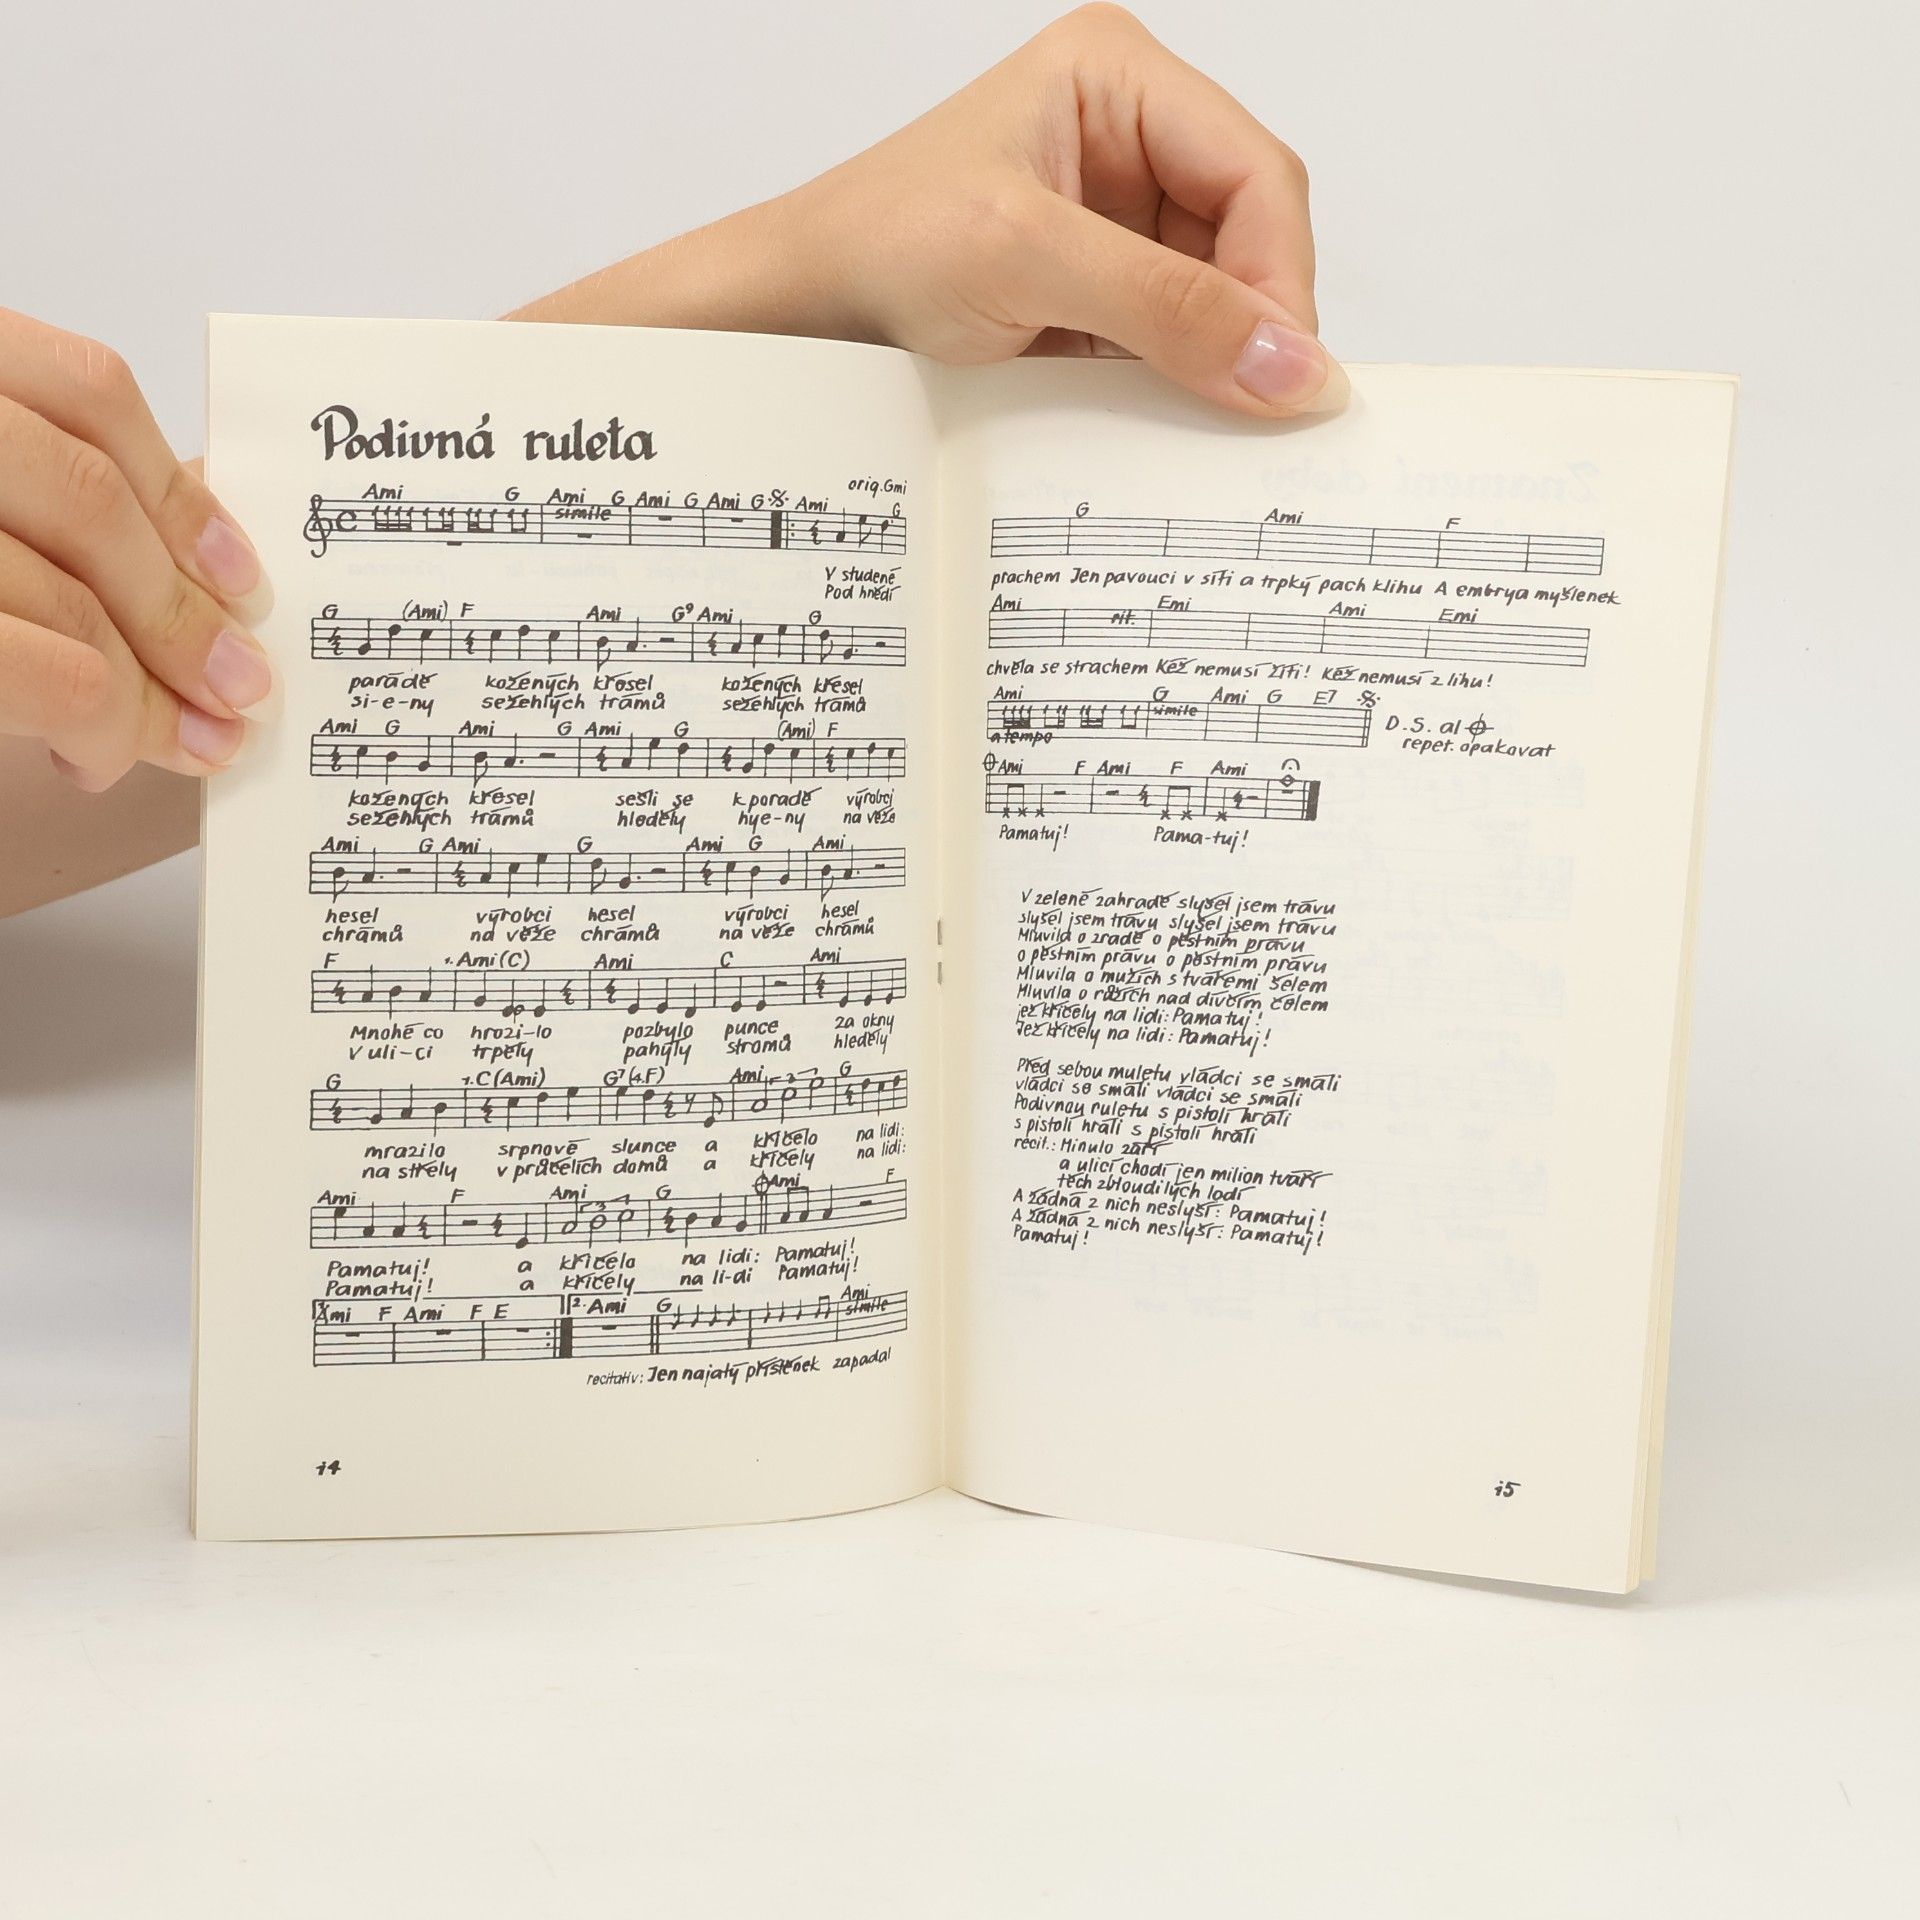 Podivná ruleta
orig. Gmi
Ami G Ami G Ami G Ami G Ami G
simile
V studené
Pod hnědí
G (Ami) F Ami G⁹ Ami G
parádě kožených křesel kožených křesel
si-e-ny sežehlých trámů sežehlých trámů
Ami G Ami G Ami G (Ami) F
kožených křesel sešli se k poradě výrobci
sežehlých trámů hleděly hye-ny na věže
Ami G Ami G Ami G Ami
hesel výrobci hesel výrobci hesel
chrámů na věže chrámů na věže chrámů
F 1. Ami (C) Ami C Ami
Mnohé co hrozi-lo pozbylo punce za okny
V uli-ci trpěly pahýly stromů hleděly
G 1. C (Ami) G⁷ (4. F) Ami 3 G
mrazilo srpnové slunce a křičelo na lidi:
na střely v průčelích domů a křičely na lidi:
Ami F Ami 3 G Ami F
Pamatuj! a křičelo na lidi: Pamatuj!
Pamatuj! a křičely na li-di Pamatuj!
1. Ami F Ami F E 2. Ami G Ami
simile
recitativ: Jen najatý přístěnek zapadal
14
G Ami F
prachem Jen pavouci v síti a trpký pach klihu A embrya myšlenek
Ami Emi Ami Emi
rit.
chvěla se strachem Kéž nemusí žíti! Kéž nemusí z lihu!
Ami G Ami G E7
simile
a tempo
D.S. al
repet. opakovat
Ami F Ami F Ami
Pamatuj! Pama-tuj!
V zelené zahradě slyšel jsem trávu
slyšel jsem trávu slyšel jsem trávu
Mluvila o zradě o pěstním právu
o pěstním právu o pěstním právu
Mluvila o mužích s tvářemi šelem
Mluvila o růžích nad dívčím čelem
jež křičely na lidi: Pamatuj!
Jež křičely na lidi: Pamatuj!
Před sebou muletu vládci se smáli
vládci se smáli vládci se smáli
Podivnou ruletu s pistolí hráli
s pistolí hráli s pistolí hráli
recit.: Minulo září
a ulicí chodí jen milion tváří
těch zbloudilých lodí
A žádná z nich neslyší: Pamatuj!
A žádná z nich neslyší: Pamatuj!
Pamatuj!
15